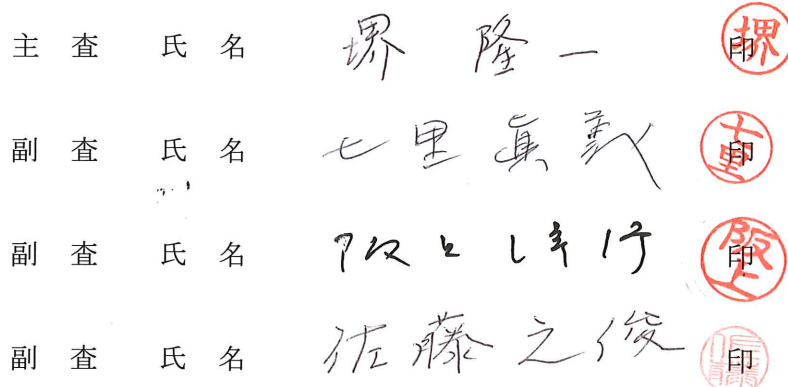 主 査 氏 名 堺 隆一 印 堺
副 査 氏 名 七里眞義 印 七里
副 査 氏 名 阪上 行 印 阪上
副 査 氏 名 佐藤之俊 印 佐藤